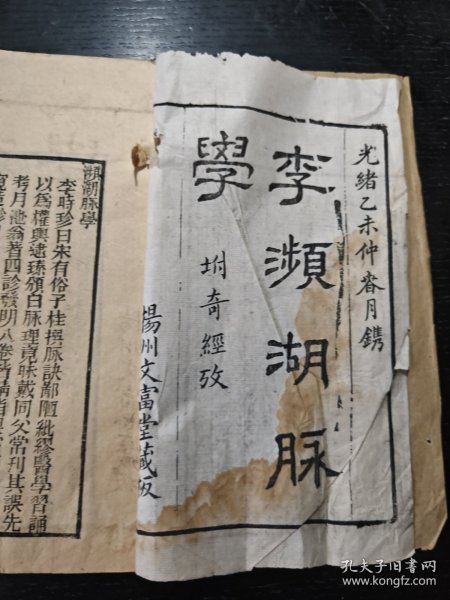 光緒乙未仲春月鐫
李瀕湖脈
學
坿奇經攷
揚州文富堂藏板
瀕湖脉學
李時珍曰宋有俗子杜撰脉訣鄙陋紕繆醫學習誦
以爲權輿逮臻頒白脉理竟昧戴同父常刋其誤先
考月池翁著四診發明八卷皆精詣
孔夫子旧书网
www.kongfz.com